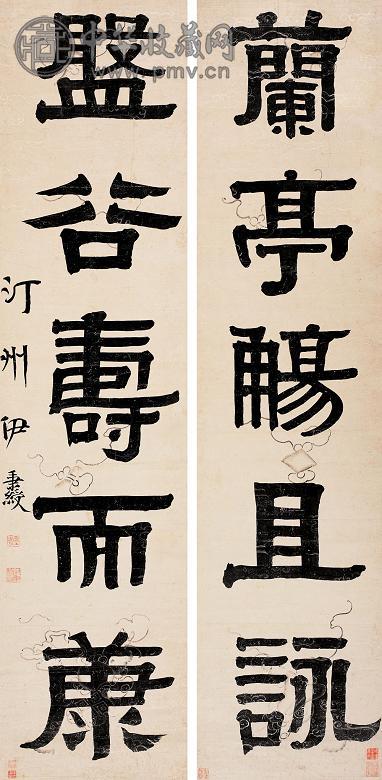 蘭亭觴且詠
盤谷壽而康
汀州伊秉綬
中华收藏网
www.pmv.cn